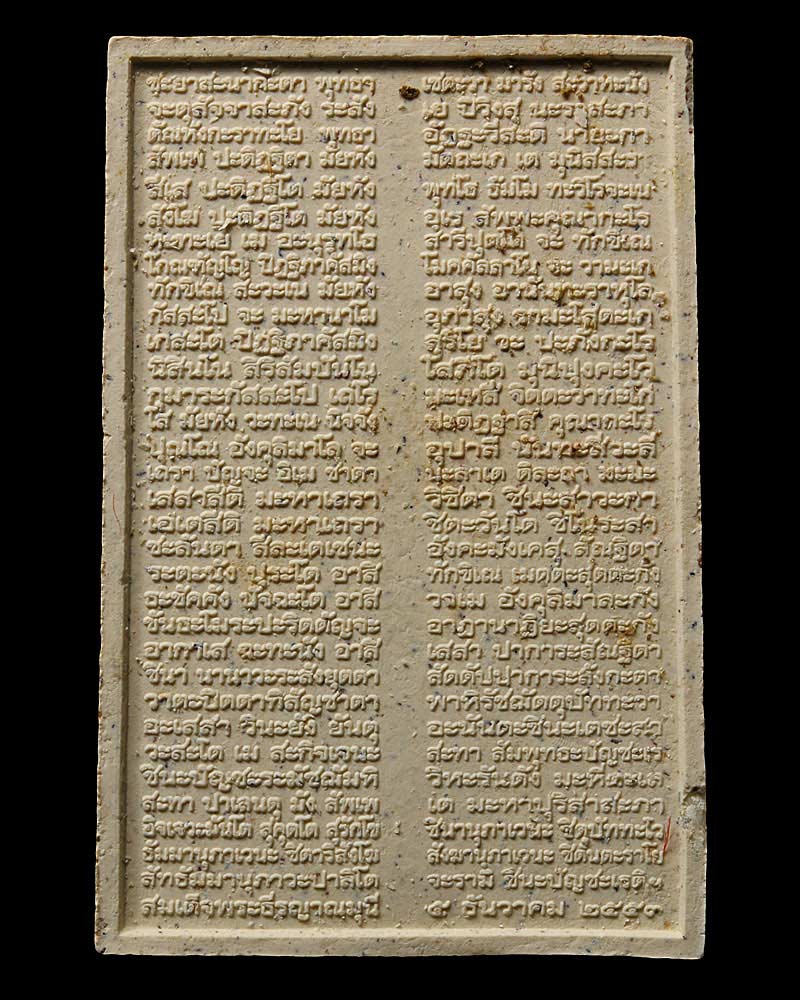 ชะยาสะนาคะตา พุทธา เชตะวา มารัง สะวาหะนัง
จะตุสัจจาสะภัง ระสัง เย ปิวิงสุ นะราสะภา
ตัณหังกะราทะโย พุทธา อัฏฐะวีสะติ นายะกา
สัพเพ ปะติฏฐิตา มัยหัง มัตถะเก เต มุนิสสะรา
สีเส ปะติฏฐิโต มัยหัง พุทโธ ธัมโม ทะวิโลจะเน
สังโฆ ปะติฏฐิโต มัยหัง อุเร สัพพะคุณากะโร
หะทะเย เม อะนุรุทโธ สารีปุตโต จะ ทักขิเณ
โกณฑัญโญ ปิฏฐิภาคัสมิง โมคคัลลาโน จะ วามะเก
ทักขิเณ สะวะเน มัยหัง อาสุง อานันทะราหุโล
กัสสะโป จะ มะหานาโม อุภาสุง วามะโสตะเก
เกสะโต ปิฏฐิภาคัสมิง สุริโย วะ ปะภังกะโร
นิสินโน สิริสัมปันโน โสภิโต มุนิปุงคะโว
กุมาระกัสสะโป เถโร มะเหสี จิตตะวาทะโก
โส มัยหัง วะทะเน นิจจัง ปะติฏฐาสิ คุณากะโร
ปุณโณ อังคุลิมาโล จะ อุปาลี นันทะสีวะลี
เถรา ปัญจะ อิเม ชาตา นะลาเต ติละกา มะมะ
เสสาสีติ มะหาเถรา วิชิตา ชินะสาวะกา
เอเตสีติ มะหาเถรา ชิตะวันโต ชิโนระสา
ชะลันตา สีละเตเชนะ อังคะมังเคสุ สัณฐิตา
ระตะนัง ปุระโต อาสิ ทักขิเณ เมตตะสุตตะกัง
ธะชัคคัง ปัจฉะโต อาสิ วาเม อังคุลิมาละกัง
ขันธะโมระปะริตตัญจะ อาฏานาฏิยะสุตตะกัง
อากาเส ฉะทะนัง อาสิ เสสา ปาการะสัณฐิตา
ชินา นานาวะระสังยุตตา สัตตัปปาการะลังกะตา
วาตะปิตตาทิสัญชาตา พาหิรัชฌัตตุปัททะวา
อะเสสา วินะยัง ยันตุ อะนันตะชินะเตชะสา
วะสะโต เม สะกิจเจนะ สะทา สัมพุทธะปัญชะเร
ชินะปัญชะระมัชฌัมหิ วิหะรันตัง มะหีตะเล
สะทา ปาเลนตุ มัง สัพเพ เต มะหาปุริสาสะภา
อิจเจวะมันโต สุคุตโต สุรักโข ชินานุภาเวนะ ชิตุปัททะโว
ธัมมานุภาเวนะ ชิตาริสังโฆ สังฆานุภาเวนะ ชิตันตะราโย
สัทธัมมานุภาวะปาลิโต จะรามิ ชินะปัญชะเรติฯ
สมเด็จพระธีรญาณมุนี ๕ ธันวาคม